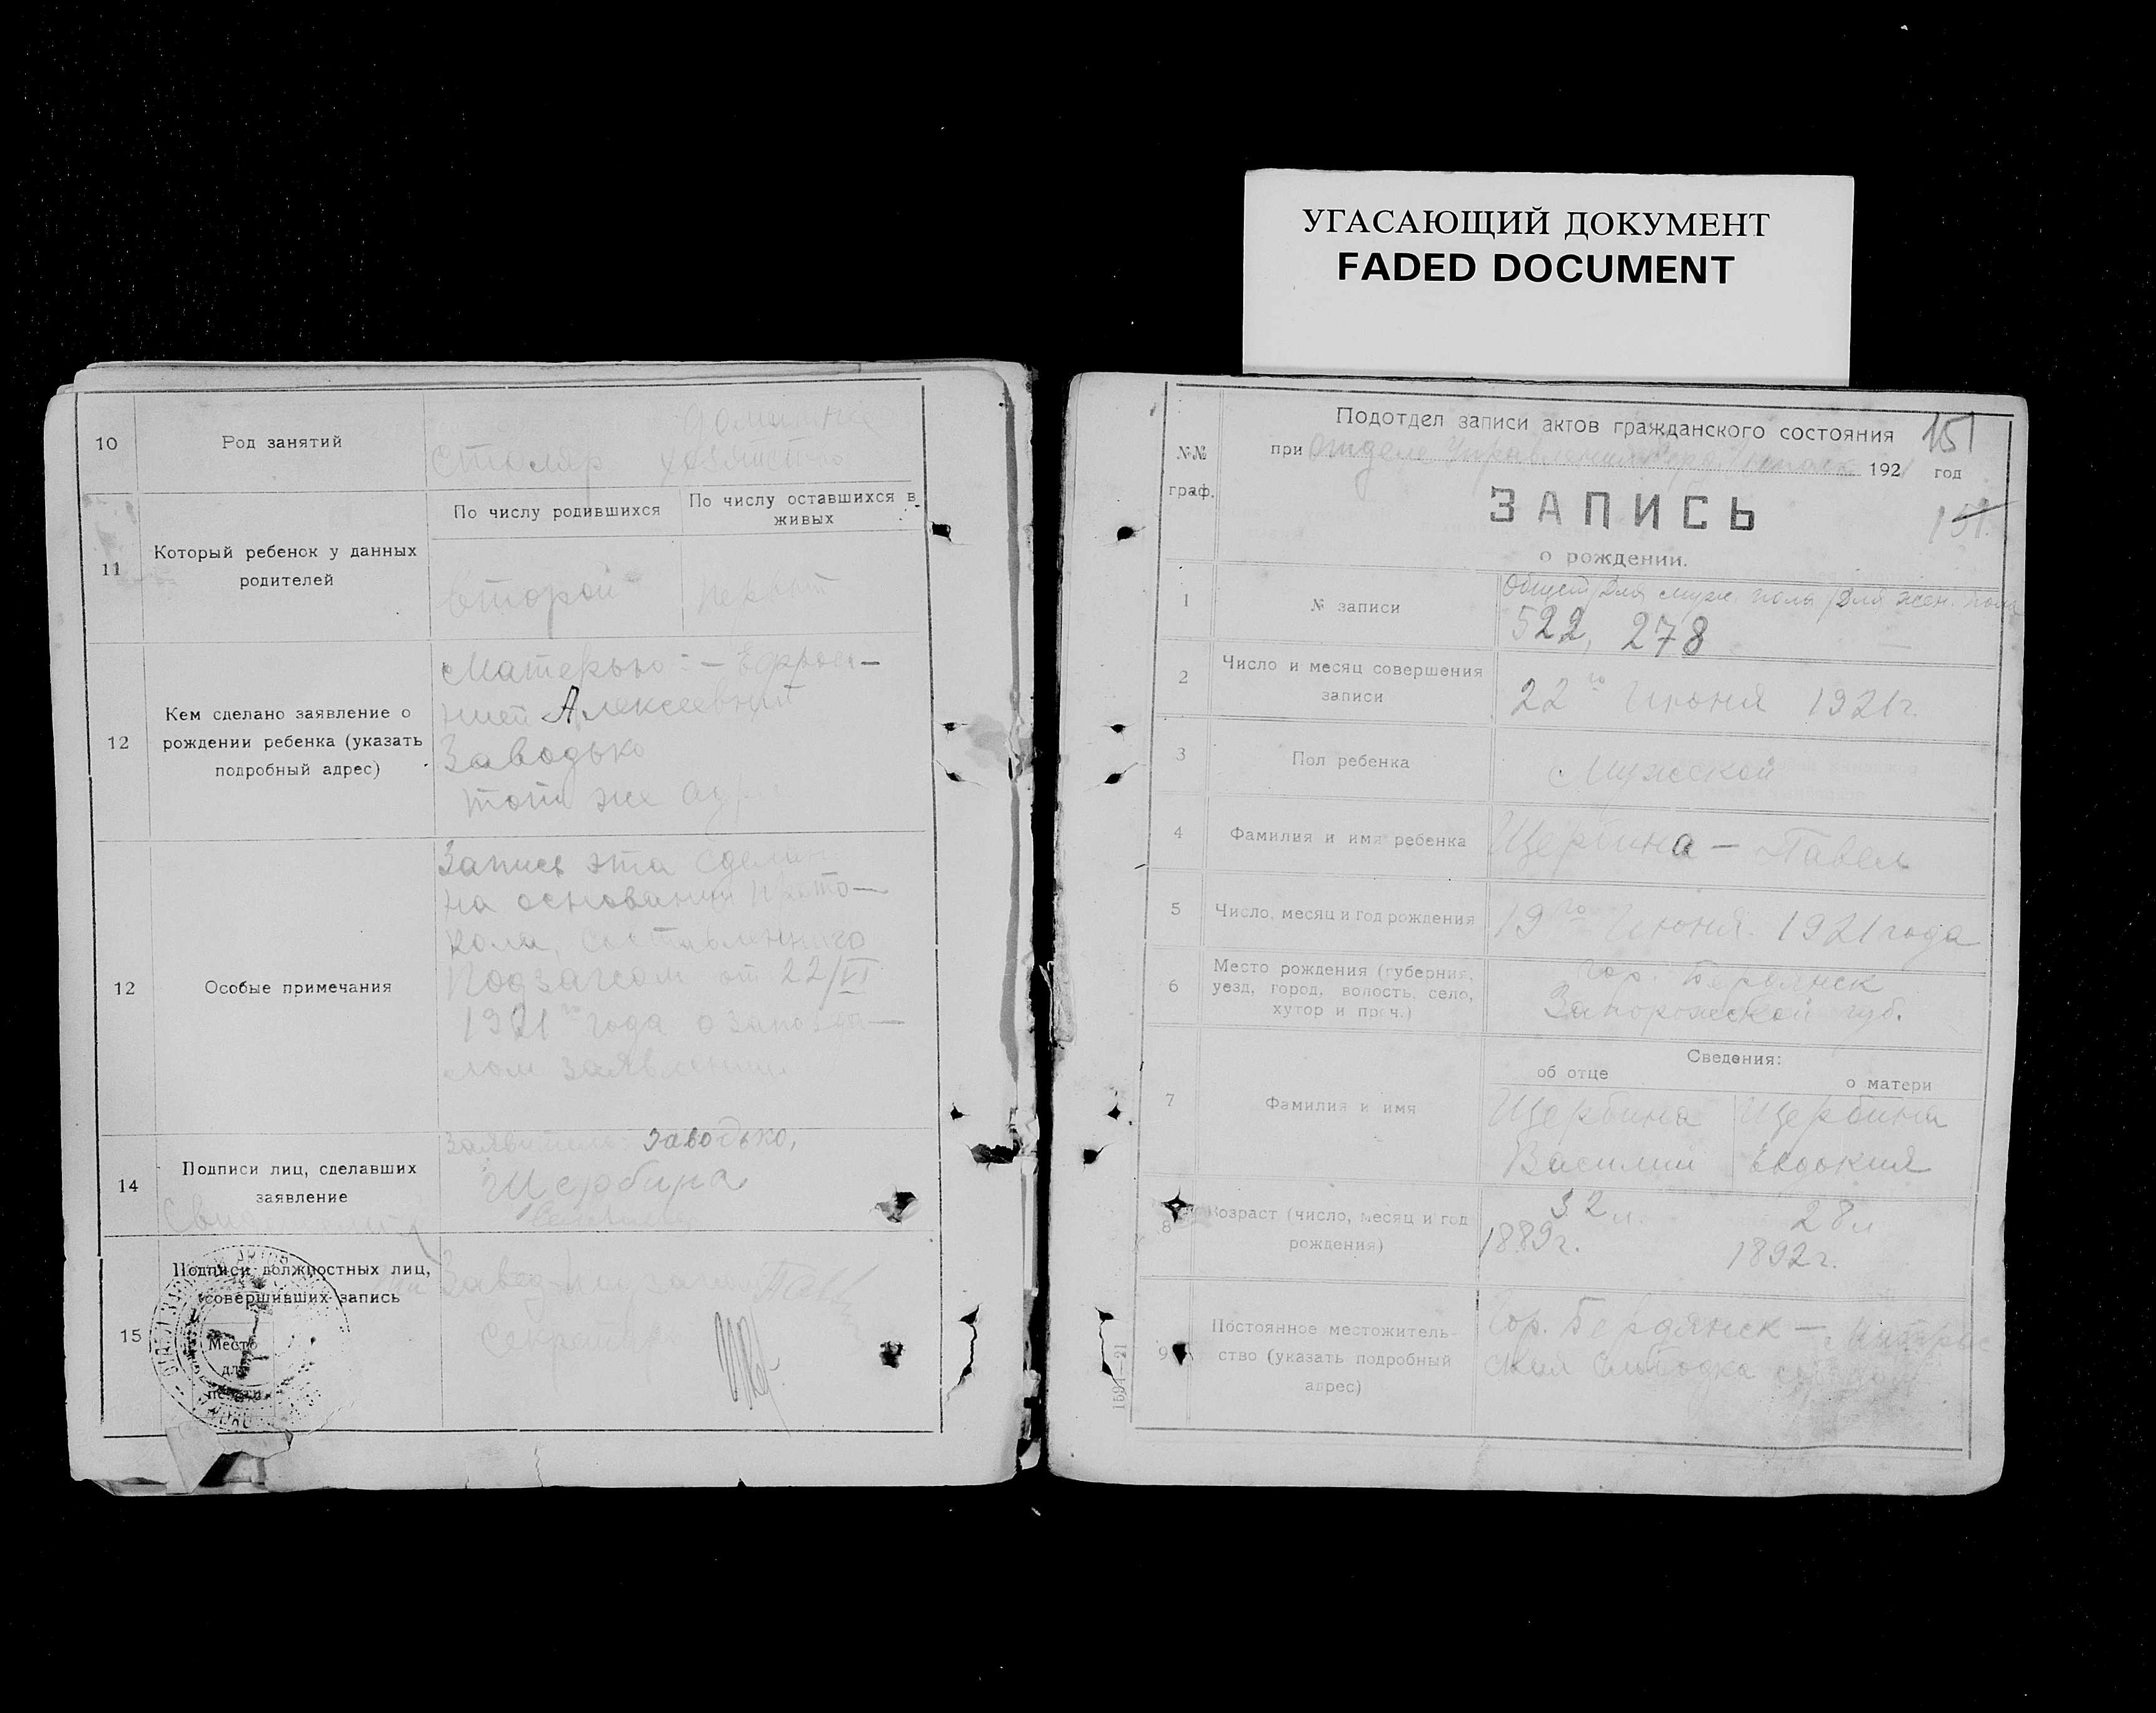 УГАСАЮЩИЙ ДОКУМЕНТ
FADED DOCUMENT
10
Род занятий
Столяр
домашнее
хозяйство
11
Который ребенок у данных
родителей
По числу родившихся
По числу оставшихся в
живых
второй
первый
12
Кем сделано заявление о
рождении ребенка (указать
подробный адрес)
Матерью: –
Алексеевной
Заводько
тот же
12
Особые примечания
Запись эта
на основании прото–
кола, составленного
Подзагсом от 22/VI
1921 го года о запозда–
лом заявлении
14
Подписи лиц, сделавших
заявление
Заводько,
Щербина
15
Подписи должностных лиц,
совершивших запись
Место
для
печати
Секретарь
Подотдел записи актов гражданского состояния
151
№№
граф.
при отделе Управления 192 год
ЗАПИСЬ
151.
о рождении.
1
№ записи
Общей / Для муж. пола / Для жен. пола
522, 278 —
2
Число и месяц совершения
записи
22 го Июня 1921г.
3
Пол ребенка
Мужской
4
Фамилия и имя ребенка
Щербина – Павел
5
Число, месяц и год рождения
19 го Июня 1921 года
6
Место рождения (губерния,
уезд, город, волость, село,
хутор и проч.)
гор. Бердянск
Запорожской губ.
Сведения:
об отце
о матери
7
Фамилия и имя
Щербина
Василий
Щербина
Евдокия
8
Возраст (число, месяц и год
рождения)
32 л.
1889г.
28 л
1892г.
9
Постоянное местожитель-
ство (указать подробный
адрес)
Гор. Бердянск –
слободка
1594—21